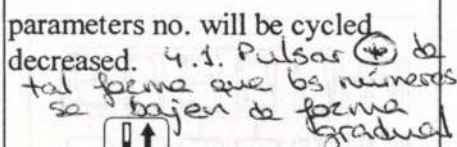 parameters no. will be cycled
decreased. 4.1. Pulsar de
tal forma que los números
se bajen de forma
gradual